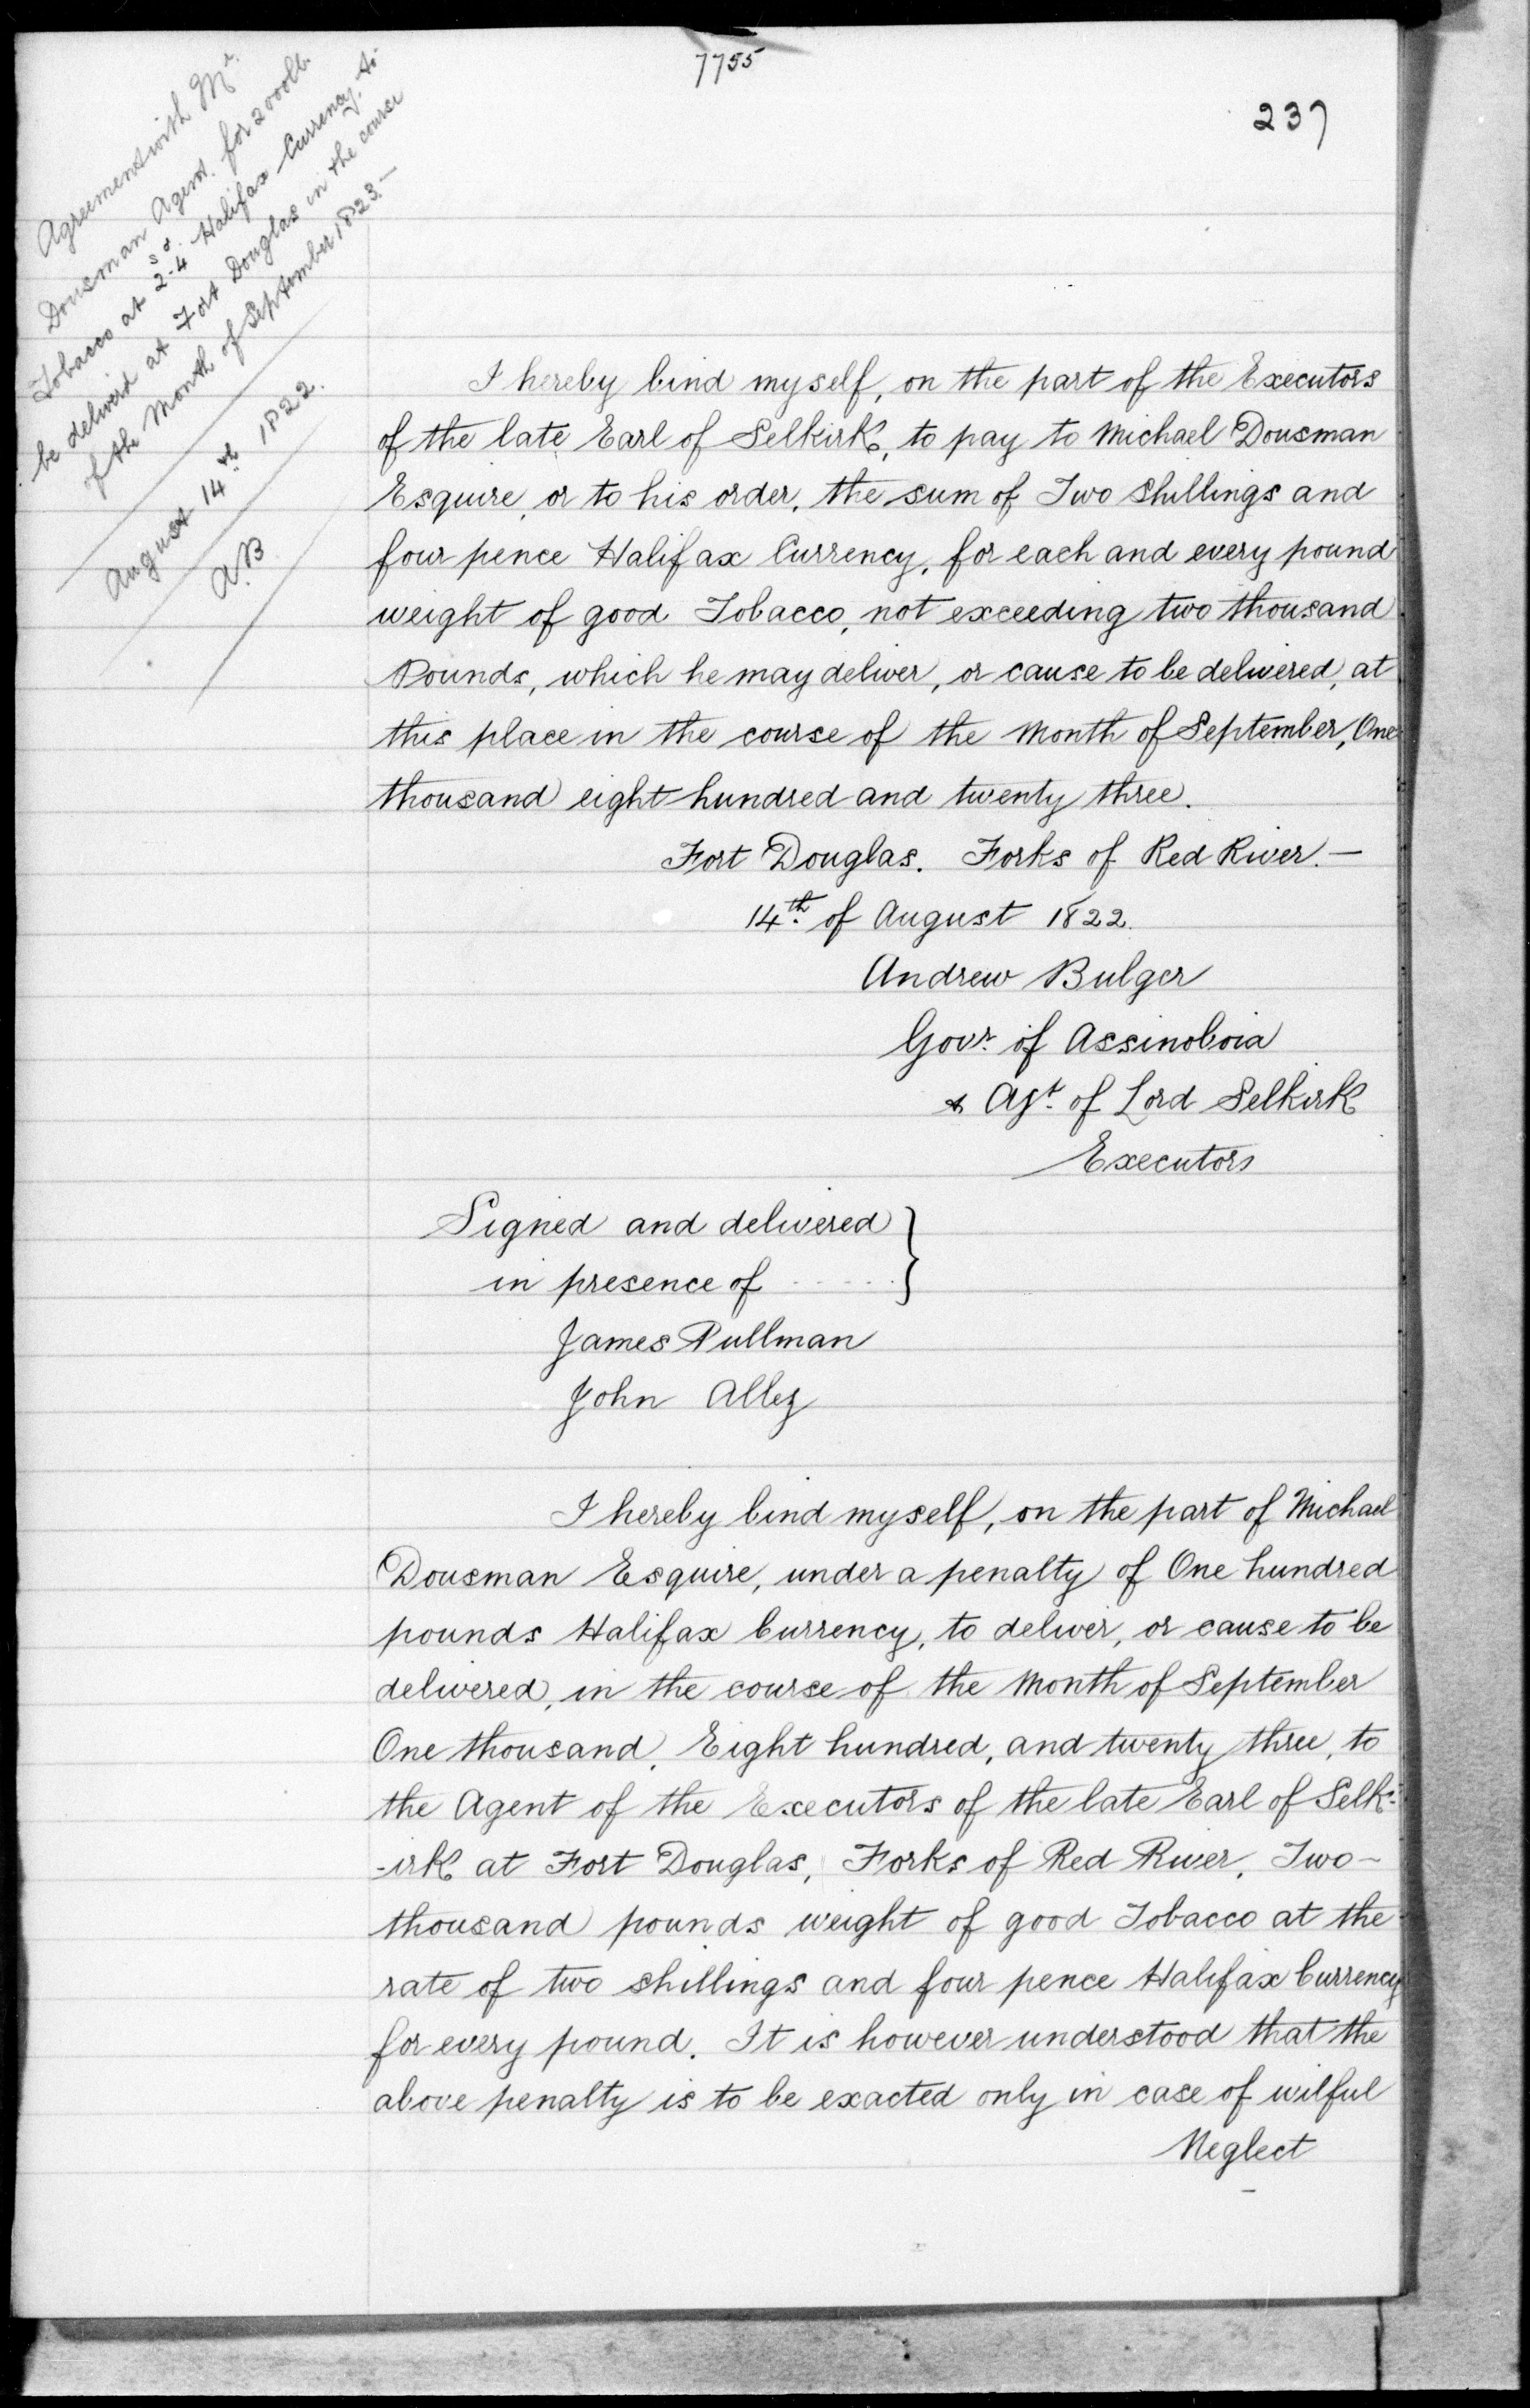 7755
237
Agreement with Mr.
Dousman Agent. for 2000lb.
Tobacco at 2s-4d Halifax Currency. to
be deliverd at Fort Douglas in the course
of the Month of September 1823.—
August 14th 1822.
A.B
I hereby bind myself, on the part of the Executors
of the late Earl of Selkirk, to pay to Michael Dousman
Esquire, or to his order, the sum of Two Shillings and
four pence Halifax Currency, for each and every pound
weight of good Tobacco, not exceeding two thousand
Pounds, which he may deliver, or cause to be delivered, at
this place in the course of the Month of September, One
thousand eight hundred and twenty three.
Fort Douglas. Forks of Red River.—
14th. of August 1822.
Andrew Bulger
Govr. of Assinoboia
& Agt. of Lord Selkirk
Executors
Signed and delivered }
in presence of ..... }
James Pullman
John Allez
I hereby bind myself, on the part of Michael
Dousman Esquire, under a penalty of One hundred
pounds Halifax Currency, to deliver, or cause to be
delivered, in the course of the Month of September
One thousand, Eight hundred, and twenty three, to
the Agent of the Executors of the late Earl of Selk-
-irk at Fort Douglas, Forks of Red River, Two-
thousand pounds weight of good Tobacco at the
rate of two shillings and four pence Halifax Currency
for every pound. It is however understood that the
above penalty is to be exacted only in case of wilful
Neglect